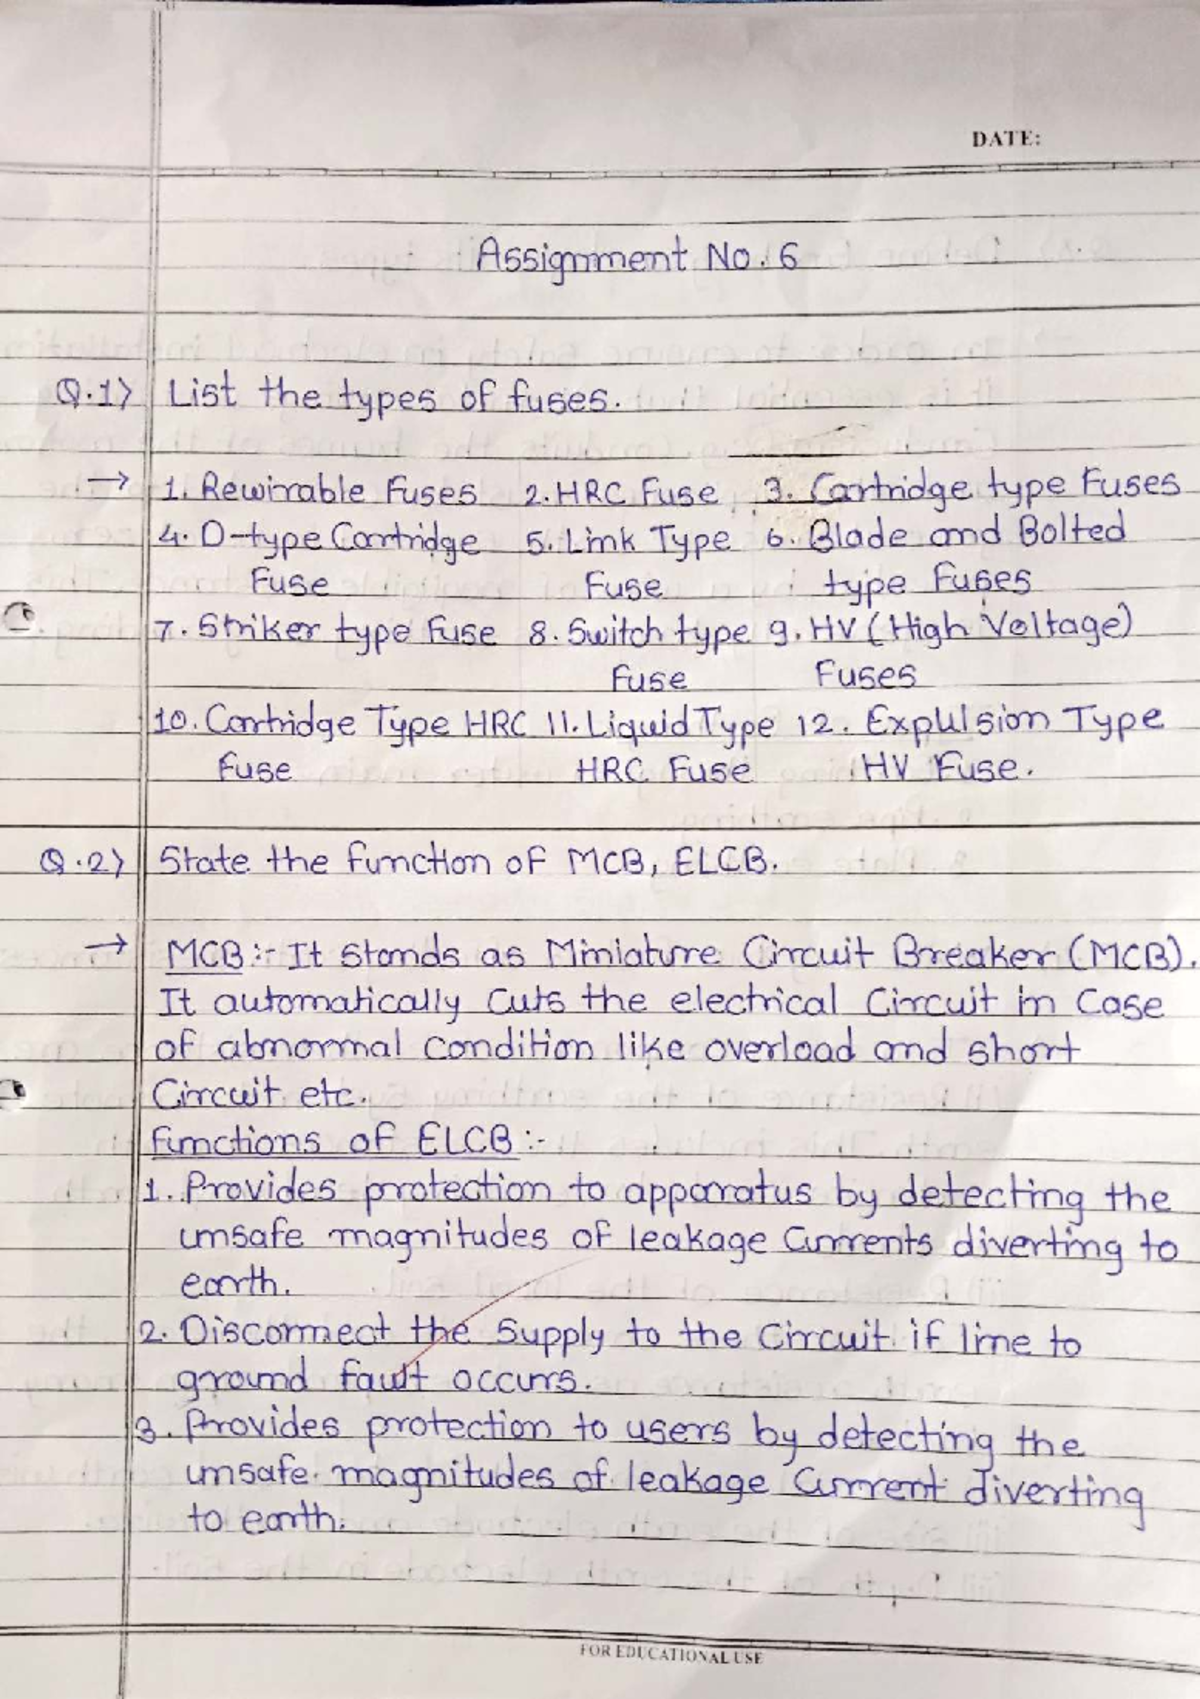 DATE:
Assignment No. 6
Q.1) List the types of fuses.
→ 1. Rewirable Fuses 2. HRC Fuse 3. Cartridge type Fuses
4. D-type Cartridge 5. Link Type 6. Blade and Bolted
Fuse Fuse type Fuses
7. Striker type Fuse 8. Switch type 9. HV (High Voltage)
Fuse Fuses
10. Cartridge Type HRC 11. Liquid Type 12. Explulsion Type
Fuse HRC Fuse HV Fuse.
Q.2) State the function of MCB, ELCB.
→ MCB :- It stands as Miniature Circuit Breaker (MCB).
It automatically cuts the electrical circuit in case
of abnormal condition like overload and short
Circuit etc.
Functions of ELCB :-
1. Provides protection to apparatus by detecting the
unsafe magnitudes of leakage currents diverting to
earth.
2. Disconnect the supply to the circuit if line to
ground fault occurs.
3. Provides protection to users by detecting the
unsafe magnitudes of leakage current diverting
to earth.
FOR EDUCATIONAL USE